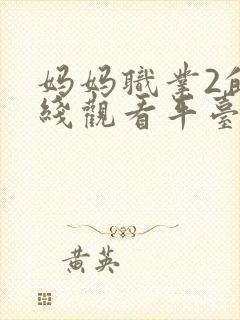 妈妈職業2的
綫觀看平臺
黄英